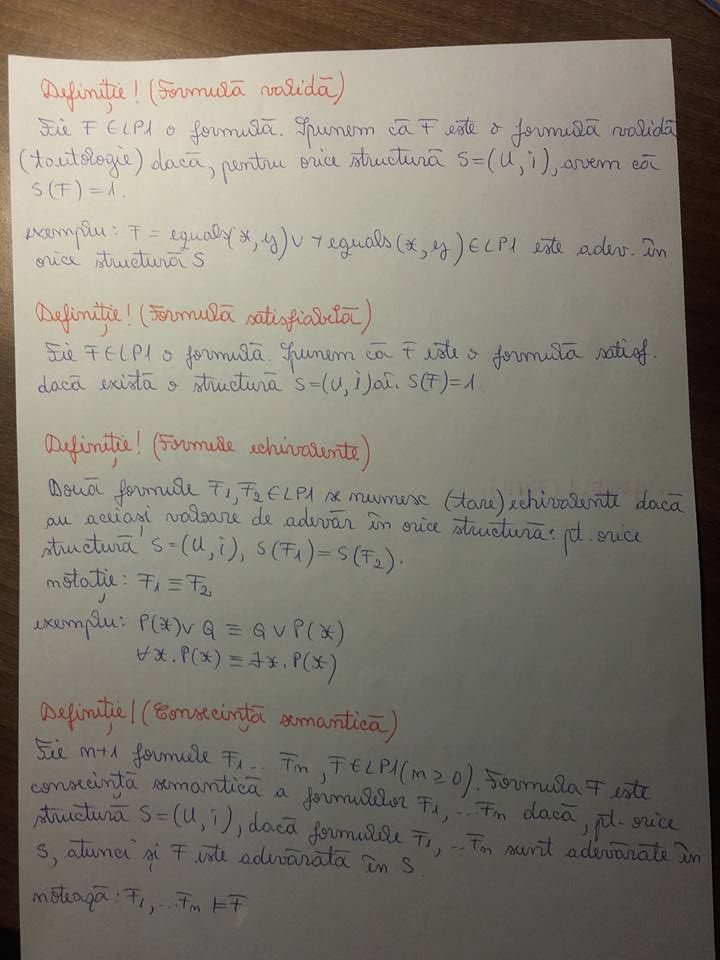 Definiție! (Formulă validă)
Fie F ∈ LP1 o formulă. Spunem că F este o formulă validă
(tautologie) dacă, pentru orice structură S=(U,i), avem că
S(F)=1.
exemplu: F = equals(x,y) ∨ ¬equals(x,y) ∈ LP1 este adev. în
orice structură S
Definiție! (Formulă satisfiabilă)
Fie F ∈ LP1 o formulă. Spunem că F este o formulă satisf.
dacă există o structură S=(U,i) aî. S(F)=1
Definiție! (Formule echivalente)
Două formule F₁,F₂ ∈ LP1 se numesc (tare) echivalente dacă
au aceiași valoare de adevăr în orice structură: pt. orice
structură S=(U,i), S(F₁)=S(F₂).
notație: F₁ ≡ F₂
exemplu: P(x) ∨ Q ≡ Q ∨ P(x)
∀x.P(x) ≡ ∃x.P(x)
Definiție! (Consecință semantică)
Fie n+1 formule F₁...Fₙ, F ∈ LP1 (n ≥ 0). Formula F este
consecință semantică a formulelor F₁,...Fₙ dacă, pt. orice
structură S=(U,i), dacă formulele F₁,...Fₙ sunt adevărate în
S, atunci și F este adevărată în S.
notează: F₁,...Fₙ ⊨ F